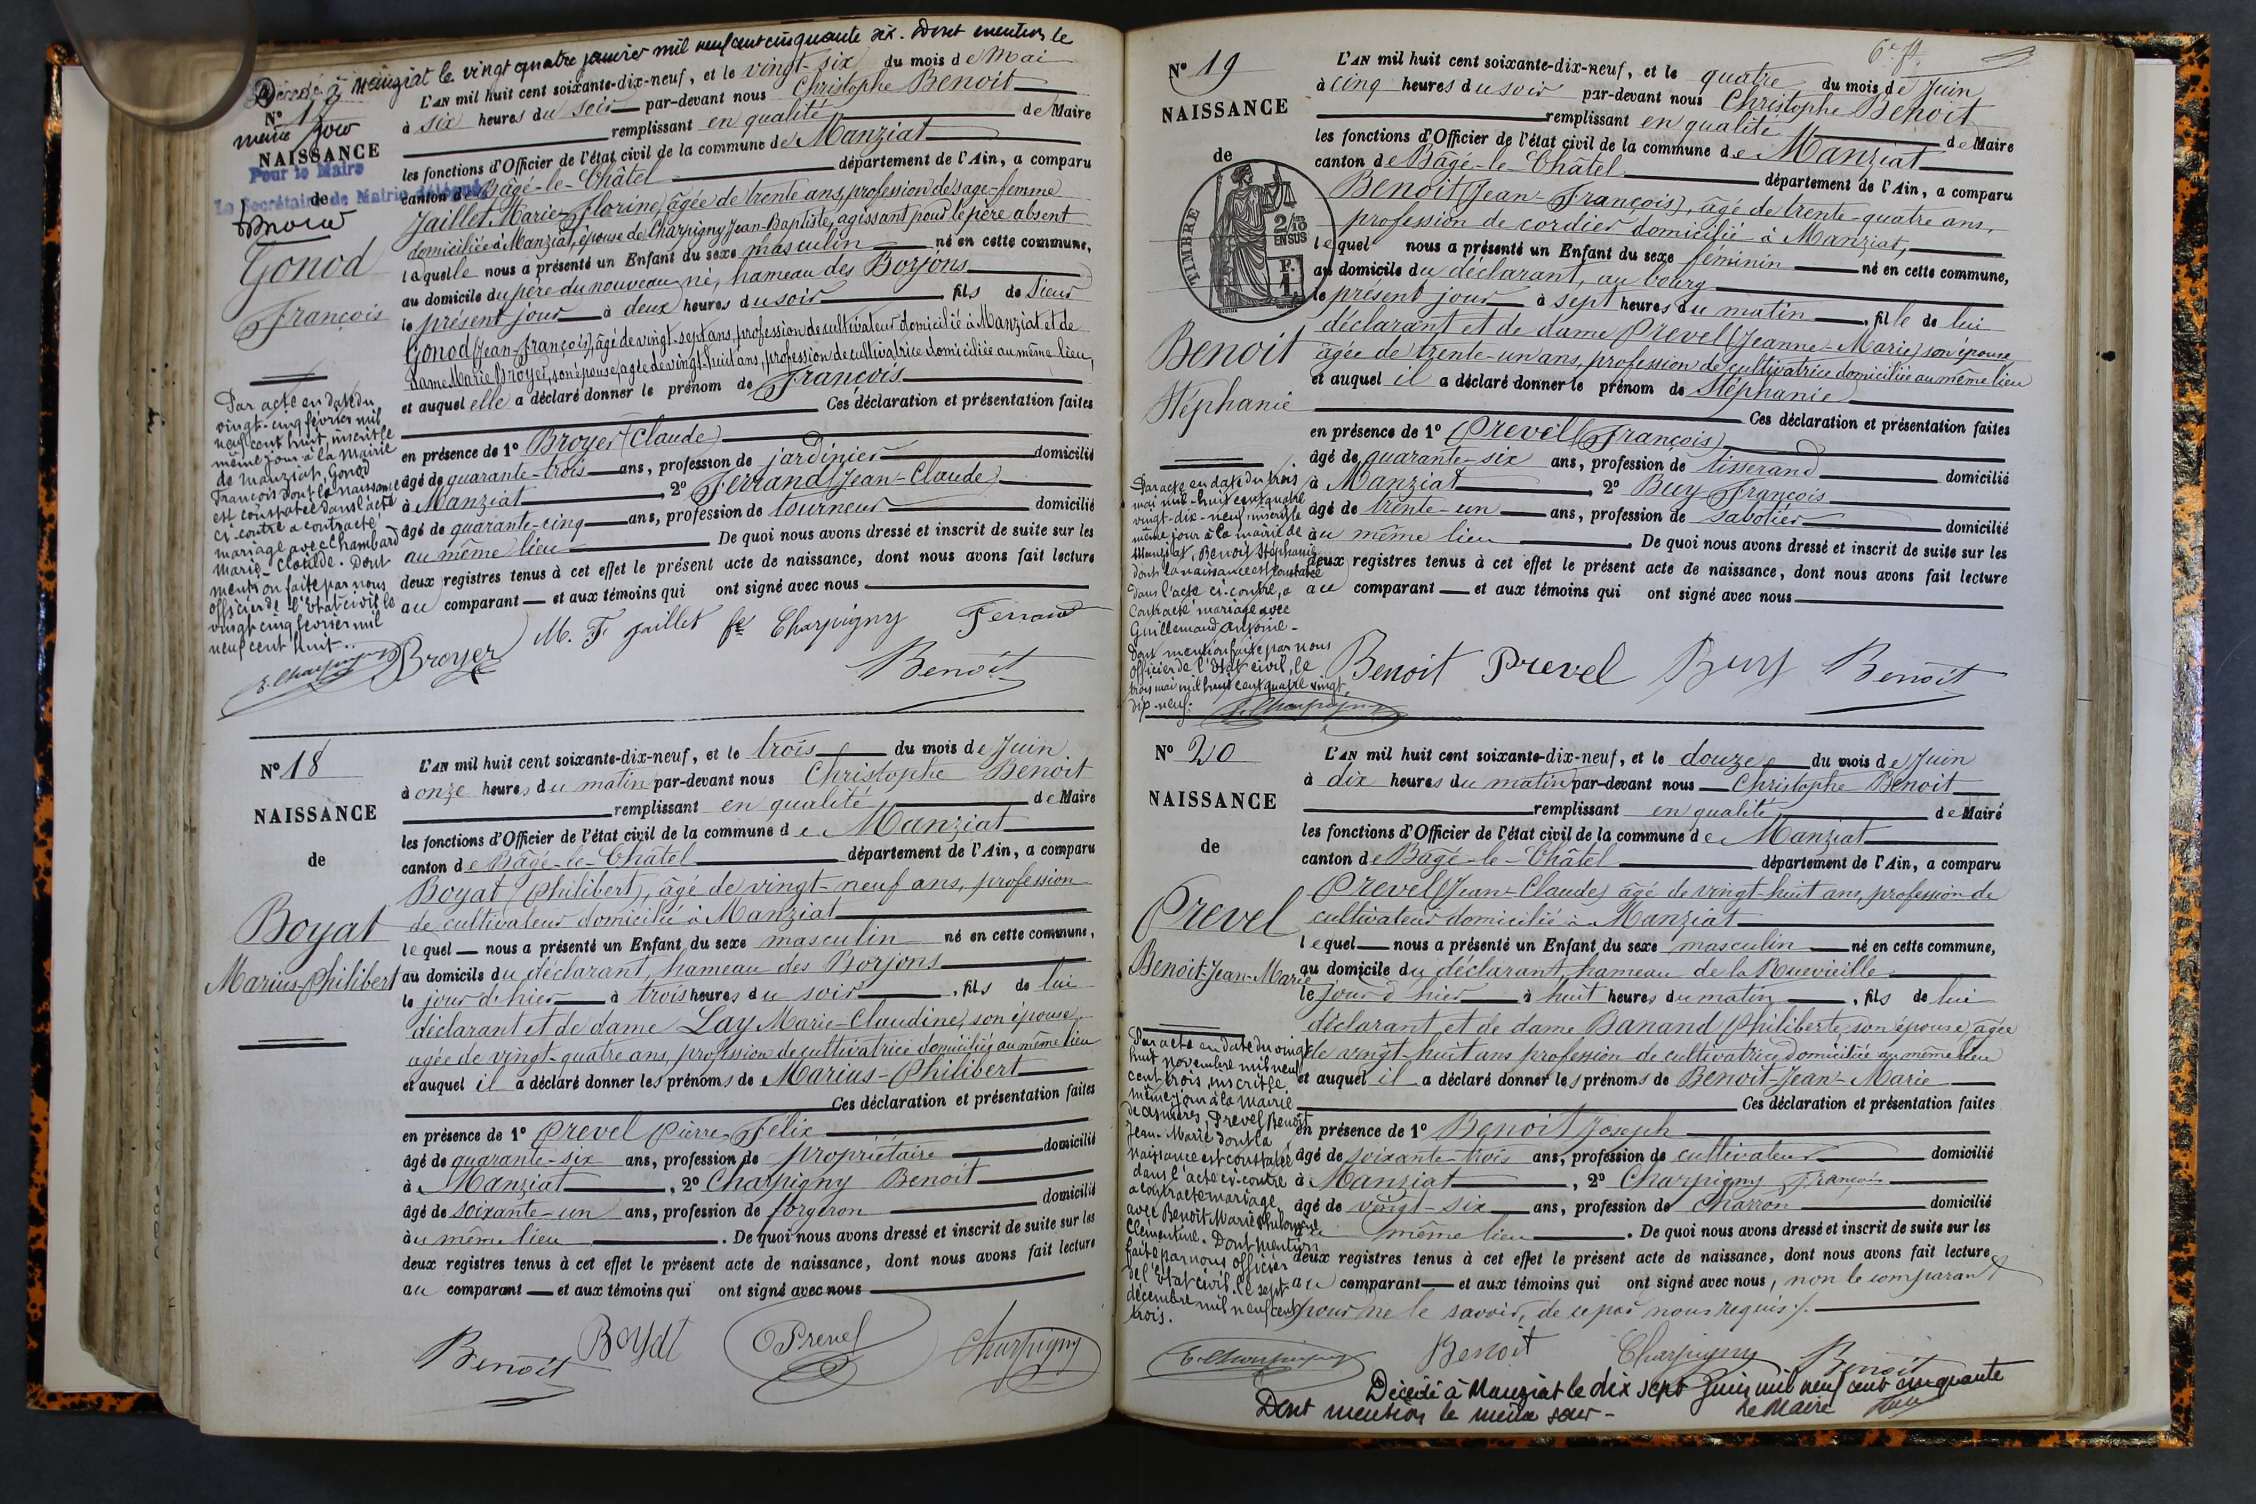 Décédé à Manziat le vingt quatre janvier mil neuf cent cinquante six. Dont mention le
même jour
Pour le Maire
Le Secrétaire de Mairie délégué
N° 17
NAISSANCE
de
Gonod
François
L'AN mil huit cent soixante-dix-neuf, et le vingt-six du mois de Mai
à six heures du soir par-devant nous Christophe Benoit
remplissant en qualité de Maire
les fonctions d'Officier de l'état civil de la commune de Manziat
canton de Bâgé-le-Châtel département de l'Ain, a comparu
Jaillet Marie-Florine, âgée de trente ans, profession de sage-femme
domiciliée à Manziat, épouse de Charpigny Jean-Baptiste, agissant pour le père absent
laquelle nous a présenté un Enfant du sexe masculin né en cette commune,
au domicile du père du nouveau-né, hameau des Borjons
le présent jour à deux heures du soir, fils de Sieur
Gonod (Jean-François), âgé de vingt-sept ans, profession de cultivateur domicilié à Manziat et de
dame Marie Broyer, son épouse, âgée de vingt-huit ans, profession de cultivatrice domiciliée au même lieu,
et auquel elle a déclaré donner le prénom de François
Ces déclaration et présentation faites
en présence de 1° Broyer (Claude)
âgé de quarante-trois ans, profession de jardinier domicilié
à Manziat, 2° Ferrand (Jean-Claude)
âgé de quarante-cinq ans, profession de tourneur domicilié
au même lieu De quoi nous avons dressé et inscrit de suite sur les
deux registres tenus à cet effet le présent acte de naissance, dont nous avons fait lecture
au comparant et aux témoins qui ont signé avec nous
Par acte en date du
vingt-cinq février mil
neuf cent huit, inscrit le
même jour à la Mairie
de Manziat, Gonod
François dont la naissance
est constatée dans l'acte
ci-contre a contracté
mariage avec Chambard
Marie-Clotilde. Dont
mention faite par nous
officier de l'Etat civil le
vingt cinq février mil
neuf cent huit.
E. Charpigny
Broyer M. F. Jaillet fe Charpigny Ferrand
Benoît
N° 18
NAISSANCE
de
Boyat
Marius-Philibert
L'AN mil huit cent soixante-dix-neuf, et le trois du mois de Juin
à onze heures du matin par-devant nous Christophe Benoit
remplissant en qualité de Maire
les fonctions d'Officier de l'état civil de la commune de Manziat
canton de Bâgé-le-Châtel département de l'Ain, a comparu
Boyat (Philibert), âgé de vingt-neuf ans, profession
de cultivateur domicilié à Manziat
lequel nous a présenté un Enfant du sexe masculin né en cette commune,
au domicile du déclarant, hameau des Borjons
le jour d'hier à trois heures du soir, fils de lui
déclarant et de dame Lay Marie-Claudine, son épouse,
agée de vingt-quatre ans, profession de cultivatrice domiciliée au même lieu
et auquel il a déclaré donner les prénoms de Marius-Philibert
Ces déclaration et présentation faites
en présence de 1° Prevel Pierre-Félix
âgé de quarante-six ans, profession de propriétaire domicilié
à Manziat, 2° Charpigny Benoit
âgé de soixante-un ans, profession de forgeron domicilié
au même lieu. De quoi nous avons dressé et inscrit de suite sur les
deux registres tenus à cet effet le présent acte de naissance, dont nous avons fait lecture
au comparant et aux témoins qui ont signé avec nous
Benoît Boyat Prevel Charpigny
6e f.
N° 19
NAISSANCE
de
TIMBRE
2/10
EN SUS
F.
1.
Benoit
Stéphanie
L'AN mil huit cent soixante-dix-neuf, et le quatre du mois de Juin
à cinq heures du soir par-devant nous Christophe Benoit
remplissant en qualité de Maire
les fonctions d'Officier de l'état civil de la commune de Manziat
canton de Bâgé-le-Châtel département de l'Ain, a comparu
Benoit (Jean-François), âgé de trente-quatre ans,
profession de cordier domicilié à Manziat,
lequel nous a présenté un Enfant du sexe féminin né en cette commune,
au domicile du déclarant, au bourg
le présent jour à sept heures du matin, fille de lui
déclarant et de dame Prevel (Jeanne-Marie) son épouse
âgée de trente-un ans, profession de cultivatrice domiciliée au même lieu
et auquel il a déclaré donner le prénom de Stéphanie
Ces déclaration et présentation faites
en présence de 1° Prevel (François)
âgé de quarante-six ans, profession de tisserand domicilié
à Manziat, 2° Buy François
âgé de trente-un ans, profession de sabotier domicilié
au même lieu. De quoi nous avons dressé et inscrit de suite sur les
deux registres tenus à cet effet le présent acte de naissance, dont nous avons fait lecture
au comparant et aux témoins qui ont signé avec nous
Par acte en date du trois
mai mil-huit cent quatre
vingt-dix-neuf inscrit le
même jour à la mairie de
Manziat, Benoit Stéphanie
dont la naissance est constatée
dans l'acte ci-contre, a
contracté mariage avec
Guillemaud Antoine-
Dont mention faite par nous
officier de l'Etat civil, le
trois mai mil huit cent quatre vingt
dix-neuf.
E. Charpigny
Benoit Prevel Buy Benoît
N° 20
NAISSANCE
de
Prevel
Benoit-Jean-Marie
L'AN mil huit cent soixante-dix-neuf, et le douze du mois de Juin
à dix heures du matin par-devant nous Christophe Benoit
remplissant en qualité de Maire
les fonctions d'Officier de l'état civil de la commune de Manziat
canton de Bagé-le-Châtel département de l'Ain, a comparu
Prevel (Jean-Claude) âgé de vingt-huit ans, profession de
cultivateur domicilié à Manziat
lequel nous a présenté un Enfant du sexe masculin né en cette commune,
au domicile du déclarant, hameau de la Ruevieille
le jour d'hier à huit heures du matin, fils de lui
déclarant et de dame Banand Philiberte, son épouse, âgée
de vingt-huit ans profession de cultivatrice domiciliée au même lieu
et auquel il a déclaré donner les prénoms de Benoit-Jean-Marie
Ces déclaration et présentation faites
en présence de 1° Benoit Joseph
âgé de soixante-trois ans, profession de cultivateur domicilié
à Manziat, 2° Charpigny François
âgé de vingt-six ans, profession de charron domicilié
au même lieu. De quoi nous avons dressé et inscrit de suite sur les
deux registres tenus à cet effet le présent acte de naissance, dont nous avons fait lecture
au comparant et aux témoins qui ont signé avec nous, non le comparant
pour ne le savoir, de ce par nous requis.
Par acte en date du vingt
huit novembre mil neuf
cent trois, inscrit le
même jour à la Mairie
de Asnières, Prevel Benoit
Jean-Marie dont la
naissance est constatée
dans l'acte ci-contre
a contracté mariage
avec Benoit Marie Philomène
Clémentine. Dont mention
faite par nous officier
de l'Etat civil le sept
décembre mil neuf cent
trois.
E. Charpigny
Benoit Charpigny Benoît
Décédé à Manziat le dix sept Juin mil neuf cent cinquante
Dont mention le même jour - Le Maire